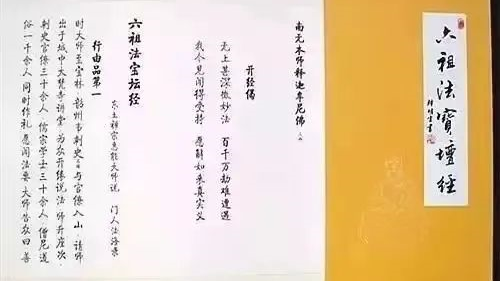 六祖法寶壇經
南无本师释迦牟尼佛
开经偈
无上甚深微妙法 百千万劫难遭遇
我今见闻得受持 愿解如来真实义
六祖法宝坛经
东土禅宗惠能大师说 门人法海录
行由品第一
时大师至宝林 韶州韦刺史与官僚入山 请师
出于城中大梵寺讲堂 为众开缘说法 师升座次
刺史官僚三十余人 儒宗学士三十余人 僧尼道
俗一千余人 同时作礼 愿闻法要 大师告众曰善